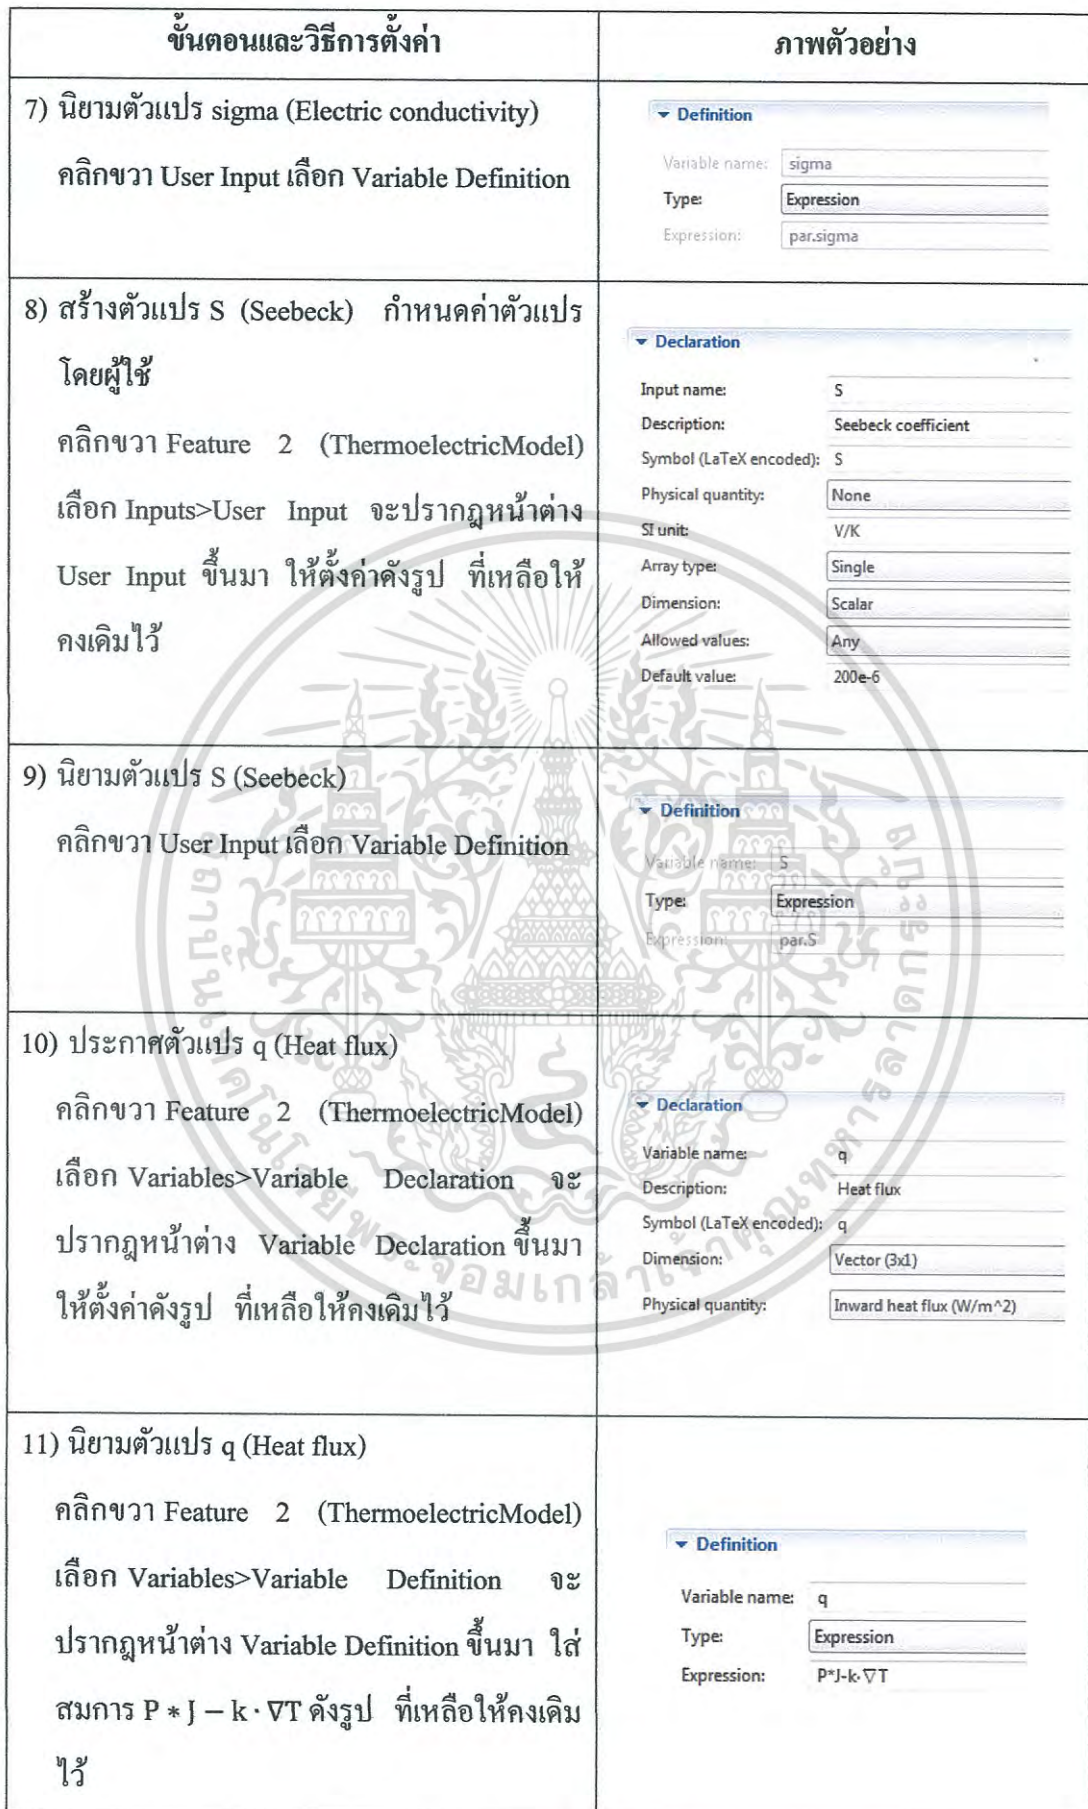 ขั้นตอนและวิธีการตั้งค่า
ภาพตัวอย่าง
7) นิยามตัวแปร sigma (Electric conductivity)
คลิกขวา User Input เลือก Variable Definition
Definition
Variable name: sigma
Type: Expression
Expression: par.sigma
8) สร้างตัวแปร S (Seebeck) กำหนดค่าตัวแปร
โดยผู้ใช้
คลิกขวา Feature 2 (ThermoelectricModel)
เลือก Inputs>User Input จะปรากฎหน้าต่าง
User Input ขึ้นมา ให้ตั้งค่าดังรูป ที่เหลือให้
คงเดิมไว้
Declaration
Input name: S
Description: Seebeck coefficient
Symbol (LaTeX encoded): S
Physical quantity: None
SI unit: V/K
Array type: Single
Dimension: Scalar
Allowed values: Any
Default value: 200e-6
9) นิยามตัวแปร S (Seebeck)
คลิกขวา User Input เลือก Variable Definition
Definition
Variable name: S
Type: Expression
Expression: par.S
10) ประกาศตัวแปร q (Heat flux)
คลิกขวา Feature 2 (ThermoelectricModel)
เลือก Variables>Variable Declaration จะ
ปรากฎหน้าต่าง Variable Declaration ขึ้นมา
ให้ตั้งค่าดังรูป ที่เหลือให้คงเดิมไว้
Declaration
Variable name: q
Description: Heat flux
Symbol (LaTeX encoded): q
Dimension: Vector (3x1)
Physical quantity: Inward heat flux (W/m^2)
11) นิยามตัวแปร q (Heat flux)
คลิกขวา Feature 2 (ThermoelectricModel)
เลือก Variables>Variable Definition จะ
ปรากฎหน้าต่าง Variable Definition ขึ้นมา ใส่
สมการ P * J − k · ∇T ดังรูป ที่เหลือให้คงเดิม
ไว้
Definition
Variable name: q
Type: Expression
Expression: P*J-k·∇T
สถาบันเทคโนโลยีพระจอมเกล้าเจ้าคุณทหารลาดกระบัง